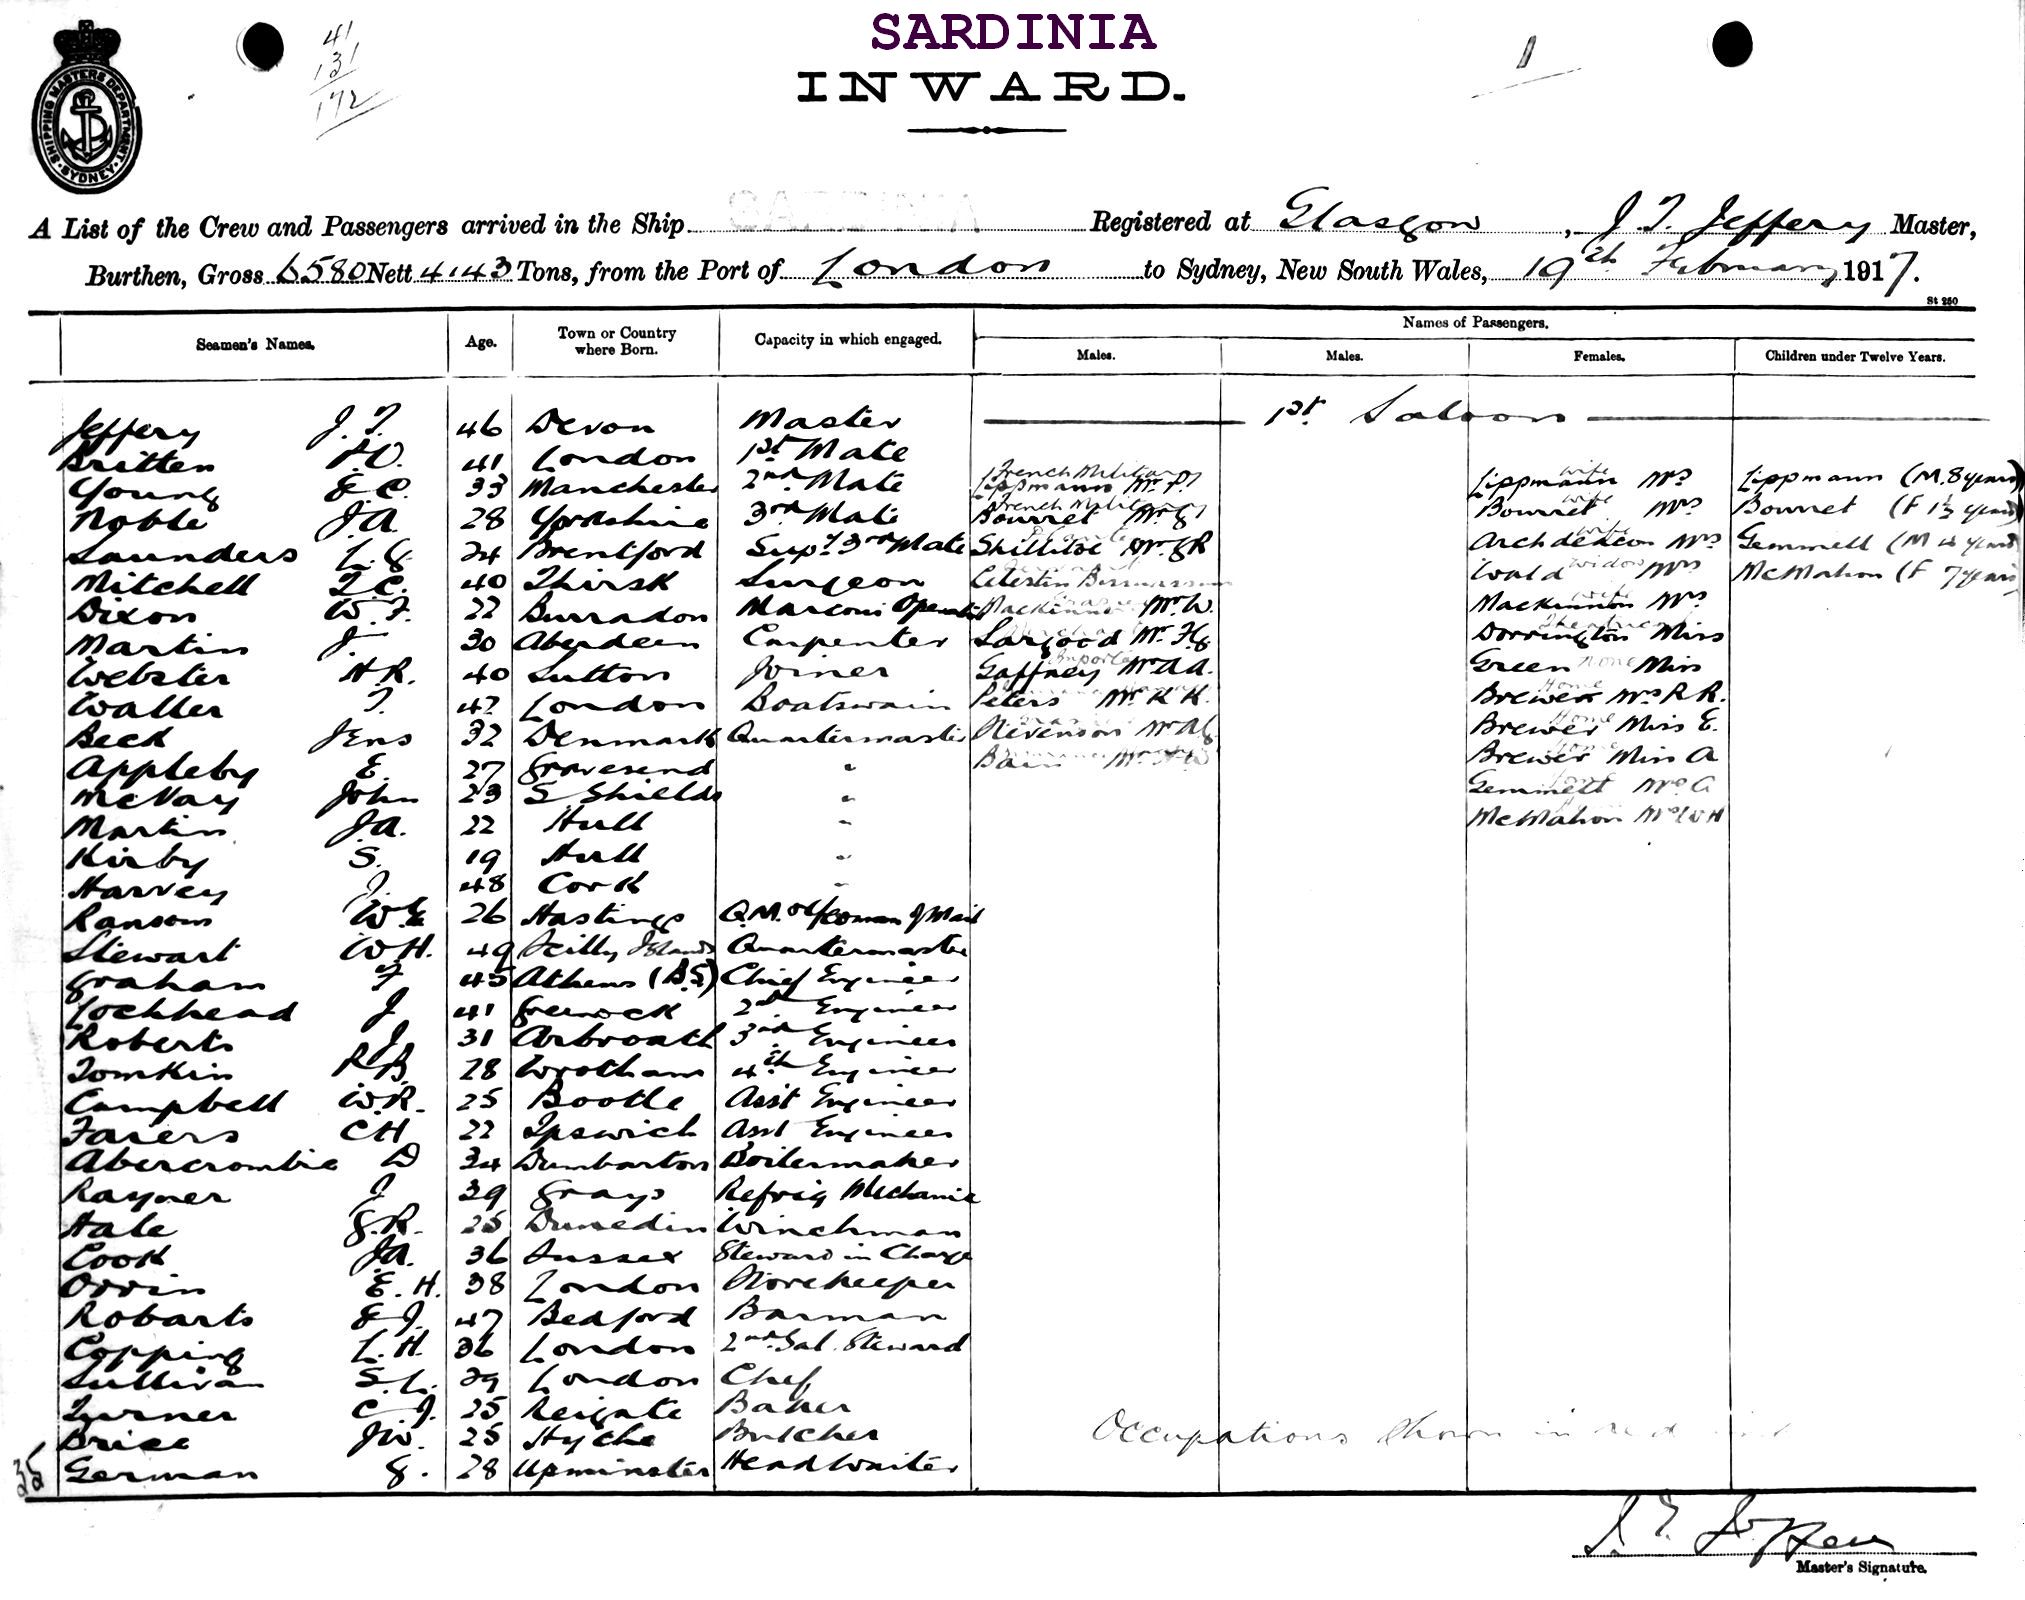 SARDINIA
INWARD.
41
131
172
1
SHIPPING MASTERS DEPARTMENT SYDNEY
A List of the Crew and Passengers arrived in the Ship SARDINIA Registered at Glasgow, J. T. Jeffery Master,
Burthen, Gross 6580 Nett 4143 Tons, from the Port of London to Sydney, New South Wales, 19th February 1917.
St 250
Seamen's Names. Age. Town or Country where Born. Capacity in which engaged. Names of Passengers.
Males. Males. Females. Children under Twelve Years.
1st Saloon
Jeffery J. T. 46 Devon Master
Britten 41 London 1st Mate
Young E. C. 33 Manchester 2nd Mate French Military Lippmann Mr P. wife Lippmann Mrs Lippmann (M. 8 years)
Noble J. A. 28 Yorkshire 3rd Mate French Military Bourret Mr G wife Bourret Mrs Bourret (F 1½ years)
Saunders L. G. 24 Brentford Supy 3rd Mate Shillitoe Mr wife Archdeacon Mrs Gemmell (M 4 years)
Mitchell T. C. 40 Thirsk Surgeon Celestin widow Wald Mrs McMahon (F 7 years)
Dixon W. F. 22 Burradon Marconi Operator Mackinnon Mr W. wife Mackinnon Mrs
Martin J 30 Aberdeen Carpenter Sargood Mr Theatrical Dorrington Miss
Webster H R. 40 Sutton Joiner Importer Gaffney Mr A A. none Green Miss
Waller T. 47 London Boatswain Peters Mr K K. Home Brewer Mrs R R.
Beck Jens 32 Denmark Quartermaster Stevenson Mr Home Brewer Miss E.
Appleby E. 27 Gravesend " Home Brewer Miss A
McVay John 23 S Shields " Gemmell Mrs A
Martin J. A. 22 Hull " McMahon Mrs W H
Kirby S. 19 Hull "
Harvey J. 48 Cork "
Ransom W. E 26 Hastings Q.M. & Yeoman of Mail
Stewart W H. 49 Scilly Islands Quartermaster
Graham F 45 Athens (B.S) Chief Engineer
Lochhead J 41 Greenock 2nd Engineer
Roberts J. 31 Arbroath 3rd Engineer
Tomkin R B. 28 Wrotham 4th Engineer
Campbell W. R. 25 Bootle Asst Engineer
Farers C H 22 Ipswich Asst Engineer
Abercrombie D 34 Dumbarton Boilermaker
Rayner J 39 Grays Refrig Mechanic
Hale G. R. 25 Dunedin Winchman
Cook J A. 36 Sussex Steward in Charge
Orrin E. H. 38 London Storekeeper
Robarts E J. 47 Bedford Barman
Copping L. H. 36 London 2nd Sal. Steward
Sullivan S. L. 39 London Chef
Turner C J. 25 Reigate Baker
Brise J W. 25 Hythe Butcher
German G. 28 Upminster Head Waiter
35
Occupations shown in red ink
J T Jeffery
Master's Signature.